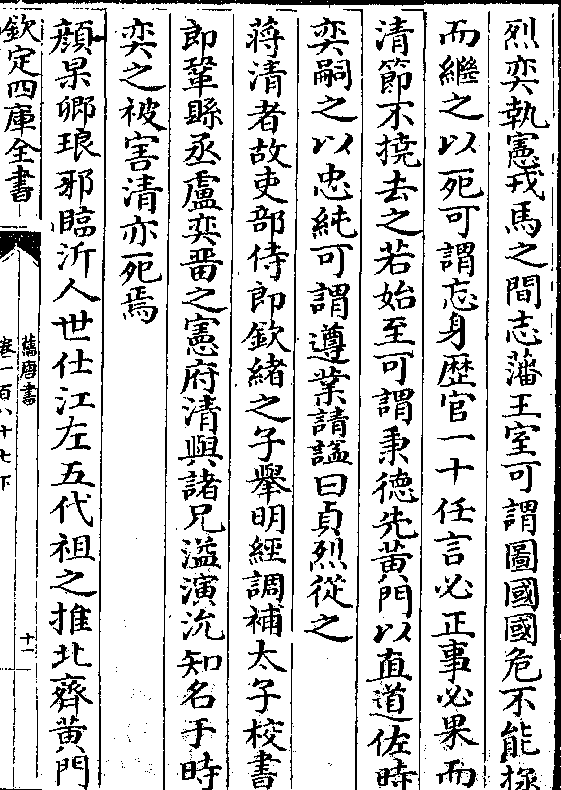 烈奕執憲戎馬之間志藩王室可謂圖國國危不能拯
而繼之以死可謂忘身歴官一十任言必正事必果而
清節不撓去之若始至可謂秉德先黄門以直道佐時
奕嗣之以忠純可謂遵業請諡曰貞烈從之
蔣清者故吏部侍郎欽緒之子舉明經調補太子校書
郎鞏縣丞盧奕畱之憲府清與諸兄溢演沇知名于時
奕之被害清亦死焉
顔杲卿琅邪臨沂人世仕江左五代祖之推北齊黄門
欽定四庫全書
舊唐書
卷一百八十七下
十一